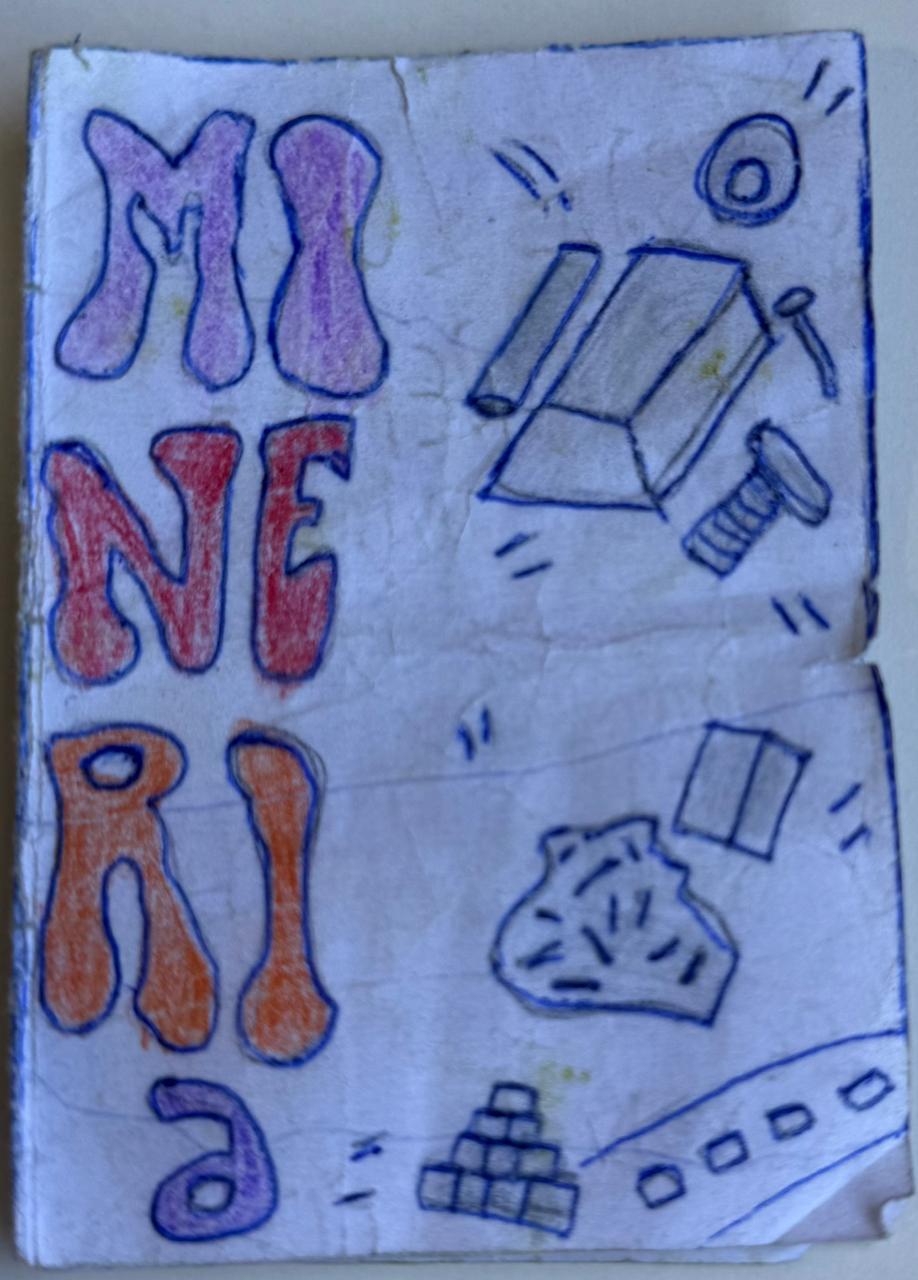 MI
NE
RI
a